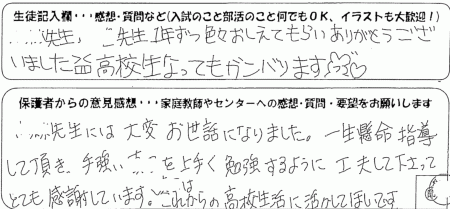 生徒記入欄・・・感想・質問など(入試のこと部活のこと何でもOK、イラストも大歓迎!)
先生、 先生1年ずつ色々おしえてもらいありがとうござ
いました 高校生なってもガンバります♡
保護者からの意見感想・・・家庭教師やセンターへの感想・質問・要望をお願いします
先生には大変お世話になりました。一生懸命指導
して頂き、手強い を上手く勉強するように工夫して下さって
とても感謝しています。これからの高校生活に活かしてほしいです